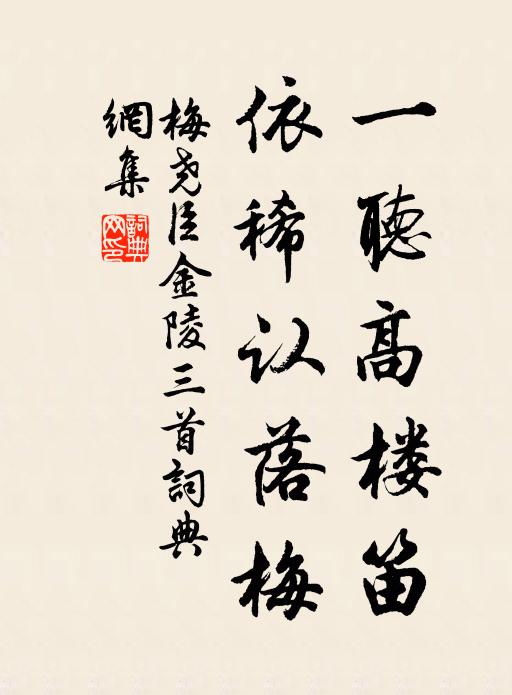 一聽高楼笛
依稀认落梅
梅尧臣金陵三首詞典
網集
詞典
网印